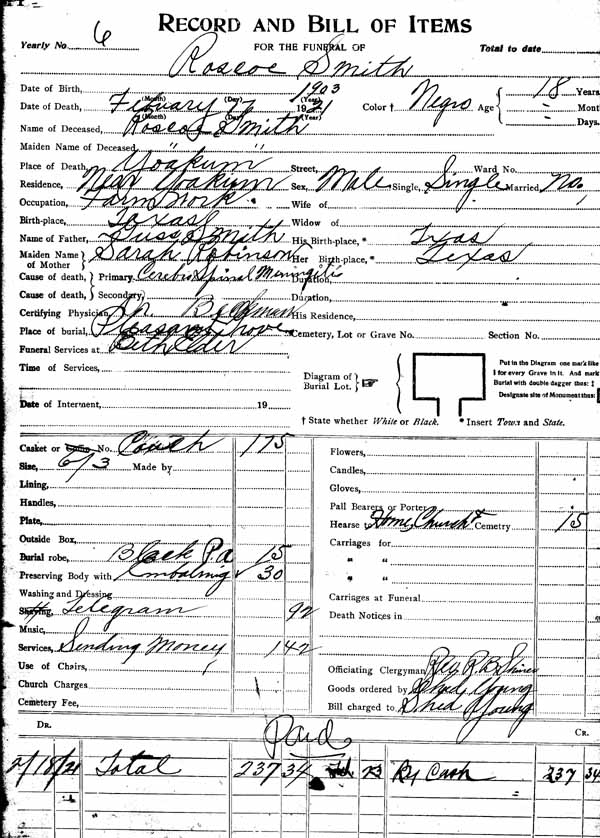 RECORD AND BILL OF ITEMS
Yearly No. 6 FOR THE FUNERAL OF Total to date
Roscoe Smith
Date of Birth, (Month) (Day) 1903 (Year) 18 Years
Date of Death, February 7 1921 Color † Negro Age Months
(Month) (Day) (Year) Days.
Name of Deceased, Roscoe Smith
Maiden Name of Deceased,
Place of Death, "Yoakum" Street, Ward No.
Residence, Near Yoakum Sex, Male Single, Single Married, No.
Occupation, Farm Work Wife of
Birth-place, Texas Widow of
Name of Father, Smith His Birth-place, * Texas
Maiden Name of Mother Sarah Robinson Her Birth-place, * Texas
Cause of death, Primary, Cerebro Spinal Meningitis Duration,
Cause of death, Secondary, Duration,
Certifying Physician, His Residence,
Place of burial, Pleasant Grove Cemetery, Lot or Grave No. Section No.
Funeral Services at Beth Eden
Time of Services,
Diagram of Burial Lot.
Put in the Diagram one mark like
I for every Grave in it. And mark
Burial with double dagger thus: ‡
Designate site of Monument thus:
Date of Interment, 19
† State whether White or Black. * Insert Town and State.
Casket or Coffin No. Couch 175
Size, 6/3 Made by
Lining,
Handles,
Plate,
Outside Box,
Burial robe, Black Pa 15
Preserving Body with Embalming 30
Washing and Dressing
Shaving, Telegram 92
Music,
Services, Sending Money 142
Use of Chairs,
Church Charges
Cemetery Fee,
Flowers,
Candles,
Gloves,
Pall Bearers or Porter
Hearse to Home, Church & Cemetry 15
Carriages for
" "
" "
Carriages at Funeral
Death Notices in
Officiating Clergyman Rev R.B.
Goods ordered by Shed Young
Bill charged to Shed Young
DR. Paid CR.
2/18/21 Total 237 34 23 By Cash 237 34